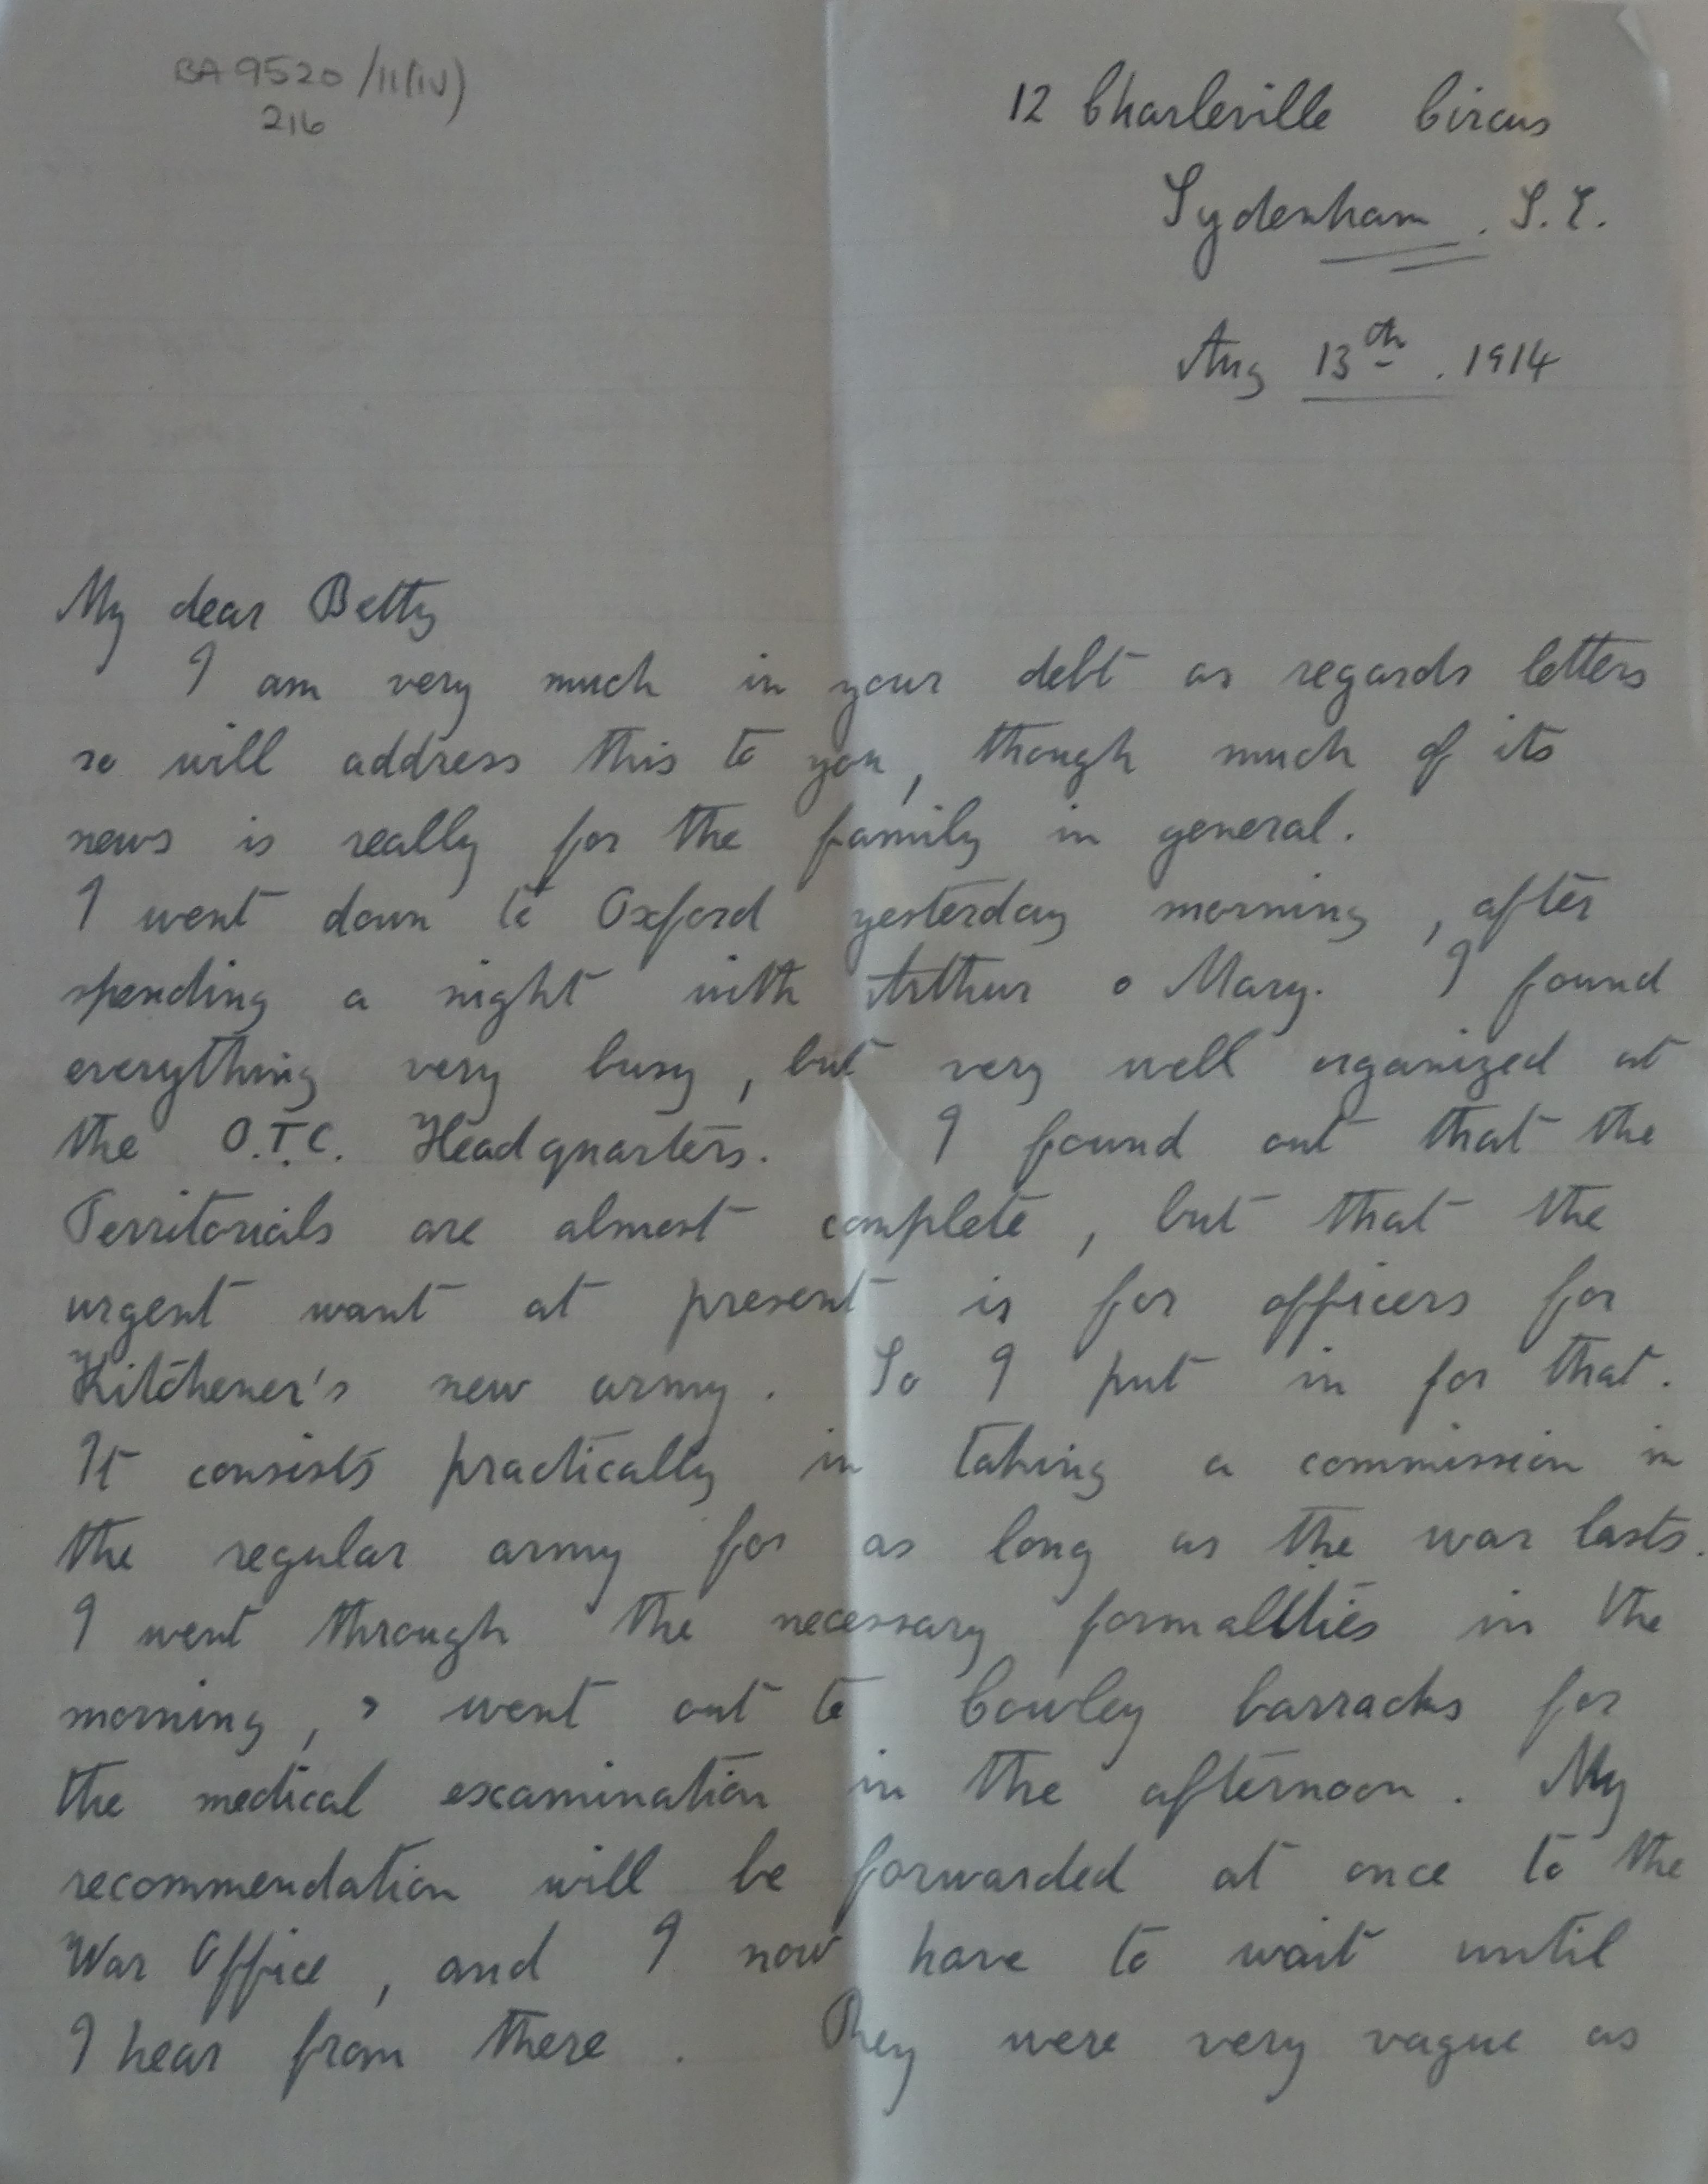 BA 9520/11(iv)
216
12 Charleville Circus
Sydenham. S.E.
Aug 13th. 1914
My dear Betty
I am very much in your debt as regards letters
so will address this to you, though much of its
news is really for the family in general.
I went down to Oxford yesterday morning, after
spending a night with Arthur & Mary. I found
everything very busy, but very well organized at
the O.T.C. Headquarters. I found out that the
Territorials are almost complete, but that the
urgent want at present is for officers for
Kitchener's new army. So I put in for that.
It consists practically in taking a commission in
the regular army for as long as the war lasts.
I went through the necessary formalities in the
morning, & went out to Cowley barracks for
the medical examination in the afternoon. My
recommendation will be forwarded at once to the
War Office, and I now have to wait until
I hear from there. They were very vague as